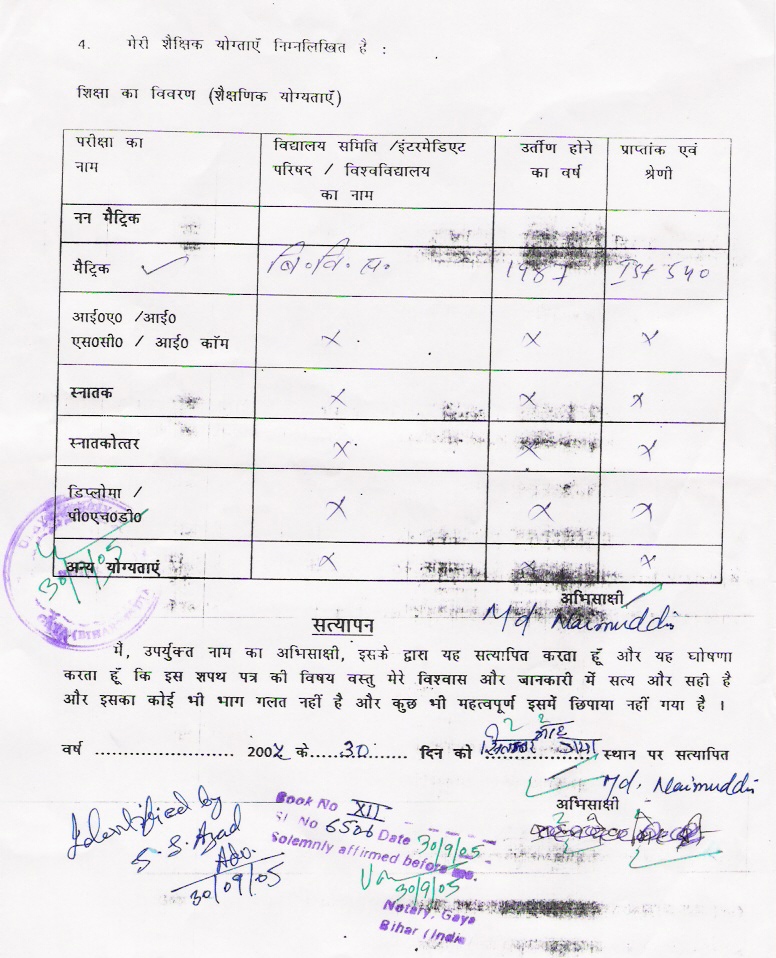 4. मेरी शैक्षिक योग्ताएँ निम्नलिखित है :
शिक्षा का विवरण (शैक्षणिक योग्यताएँ)
परीक्षा का नाम
विद्यालय समिति /इंटरमेडिएट परिषद / विश्वविद्यालय का नाम
उर्तीण होने का वर्ष
प्राप्तांक एवं श्रेणी
नन मैट्रिक
मैट्रिक ✓ बि॰ वि॰ स॰ 1987 Ist 540
आई0ए0 /आई0
एस0सी0 / आई0 कॉम x x x
स्नातक x x x
स्नातकोत्तर x x x
डिप्लोमा /
पी0एच0डी0 x x x
अन्य योग्यताएं x x x
30/9/05
अभिसाक्षी
Md Naimuddin
सत्यापन
मैं, उपर्युक्त नाम का अभिसाक्षी, इसके द्वारा यह सत्यापित करता हूँ और यह घोषणा
करता हूँ कि इस शपथ पत्र की विषय वस्तु मेरे विश्वास और जानकारी में सत्य और सही है
और इसका कोई भी भाग गलत नहीं है और कुछ भी महत्वपूर्ण इसमें छिपाया नहीं गया है ।
वर्ष .................... 2005 के....30.......... दिन को सितम्बर माह गया स्थान पर सत्यापित
Md. Naimuddin
अभिसाक्षी
Identified by
S. S. Azad
Adv.
30/09/05
Book No XII
Sl No 6506 Date 30/9/05
Solemnly affirmed before me.
30/9/05
Notary, Gaya
Bihar (India